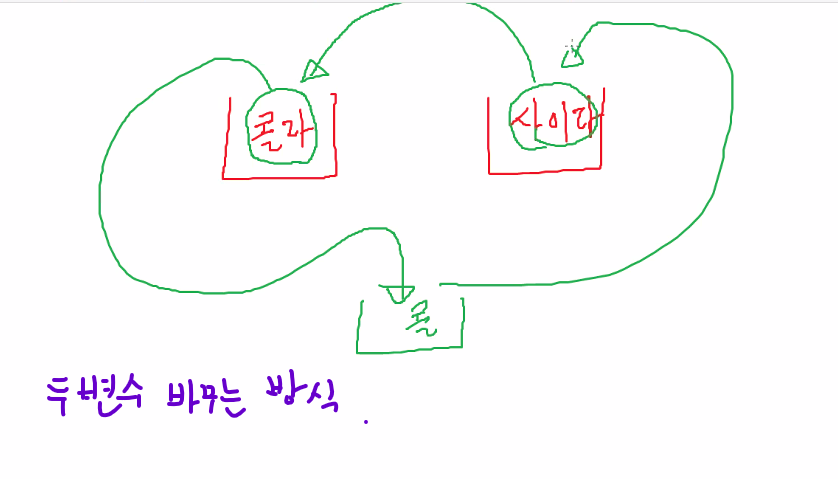 콜라 사이다
콜
두변수 바꾸는 방식.